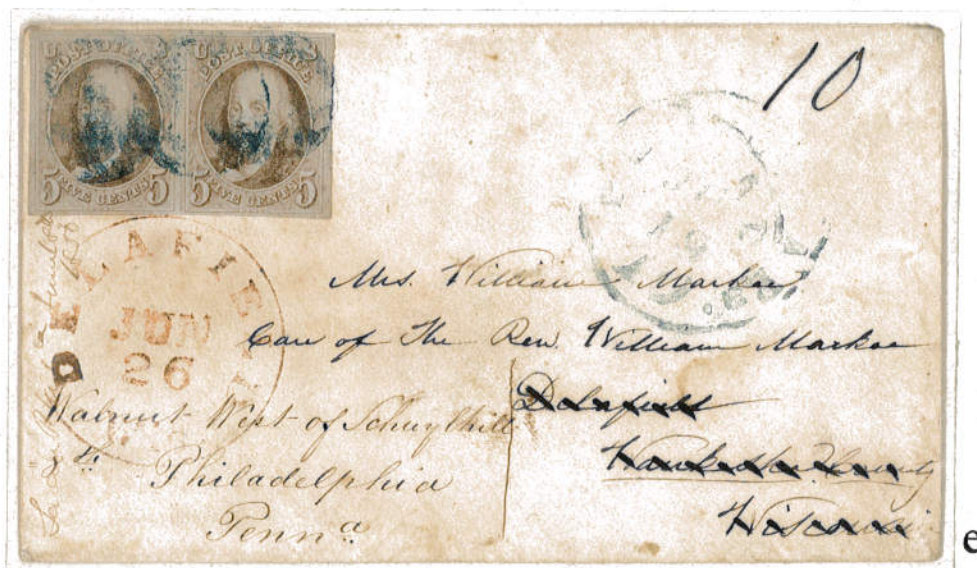 POST OFFICE
FIVE CENTS
5 5
POST OFFICE
FIVE CENTS
5 5
10
DELAFIEL
JUN
26
Mrs. William Markoe
Care of The Rev. William Markoe
Delafield
Waukesha County
Wisconsin
Walnut West of Schuylkill
8th
Philadelphia
Penna
e